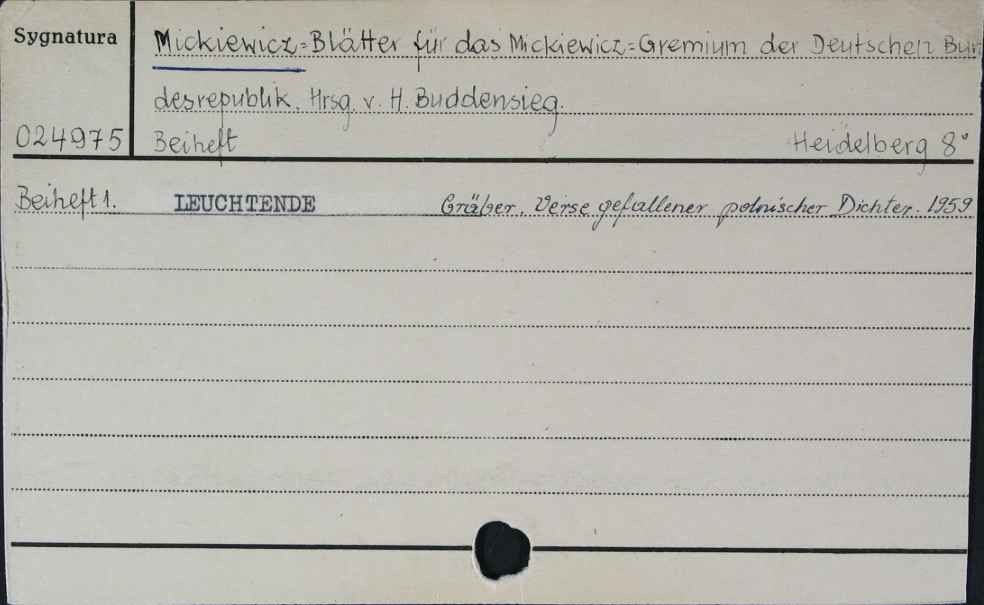 Sygnatura
Mickiewicz=Blätter für das Mickiewicz=Gremium der Deutschen Bun
desrepublik. Hrsg. v. H. Buddensieg.
024975 Beiheft Heidelberg 8°
Beiheft 1. LEUCHTENDE Gräber. Verse gefallener polnischer Dichter. 1959